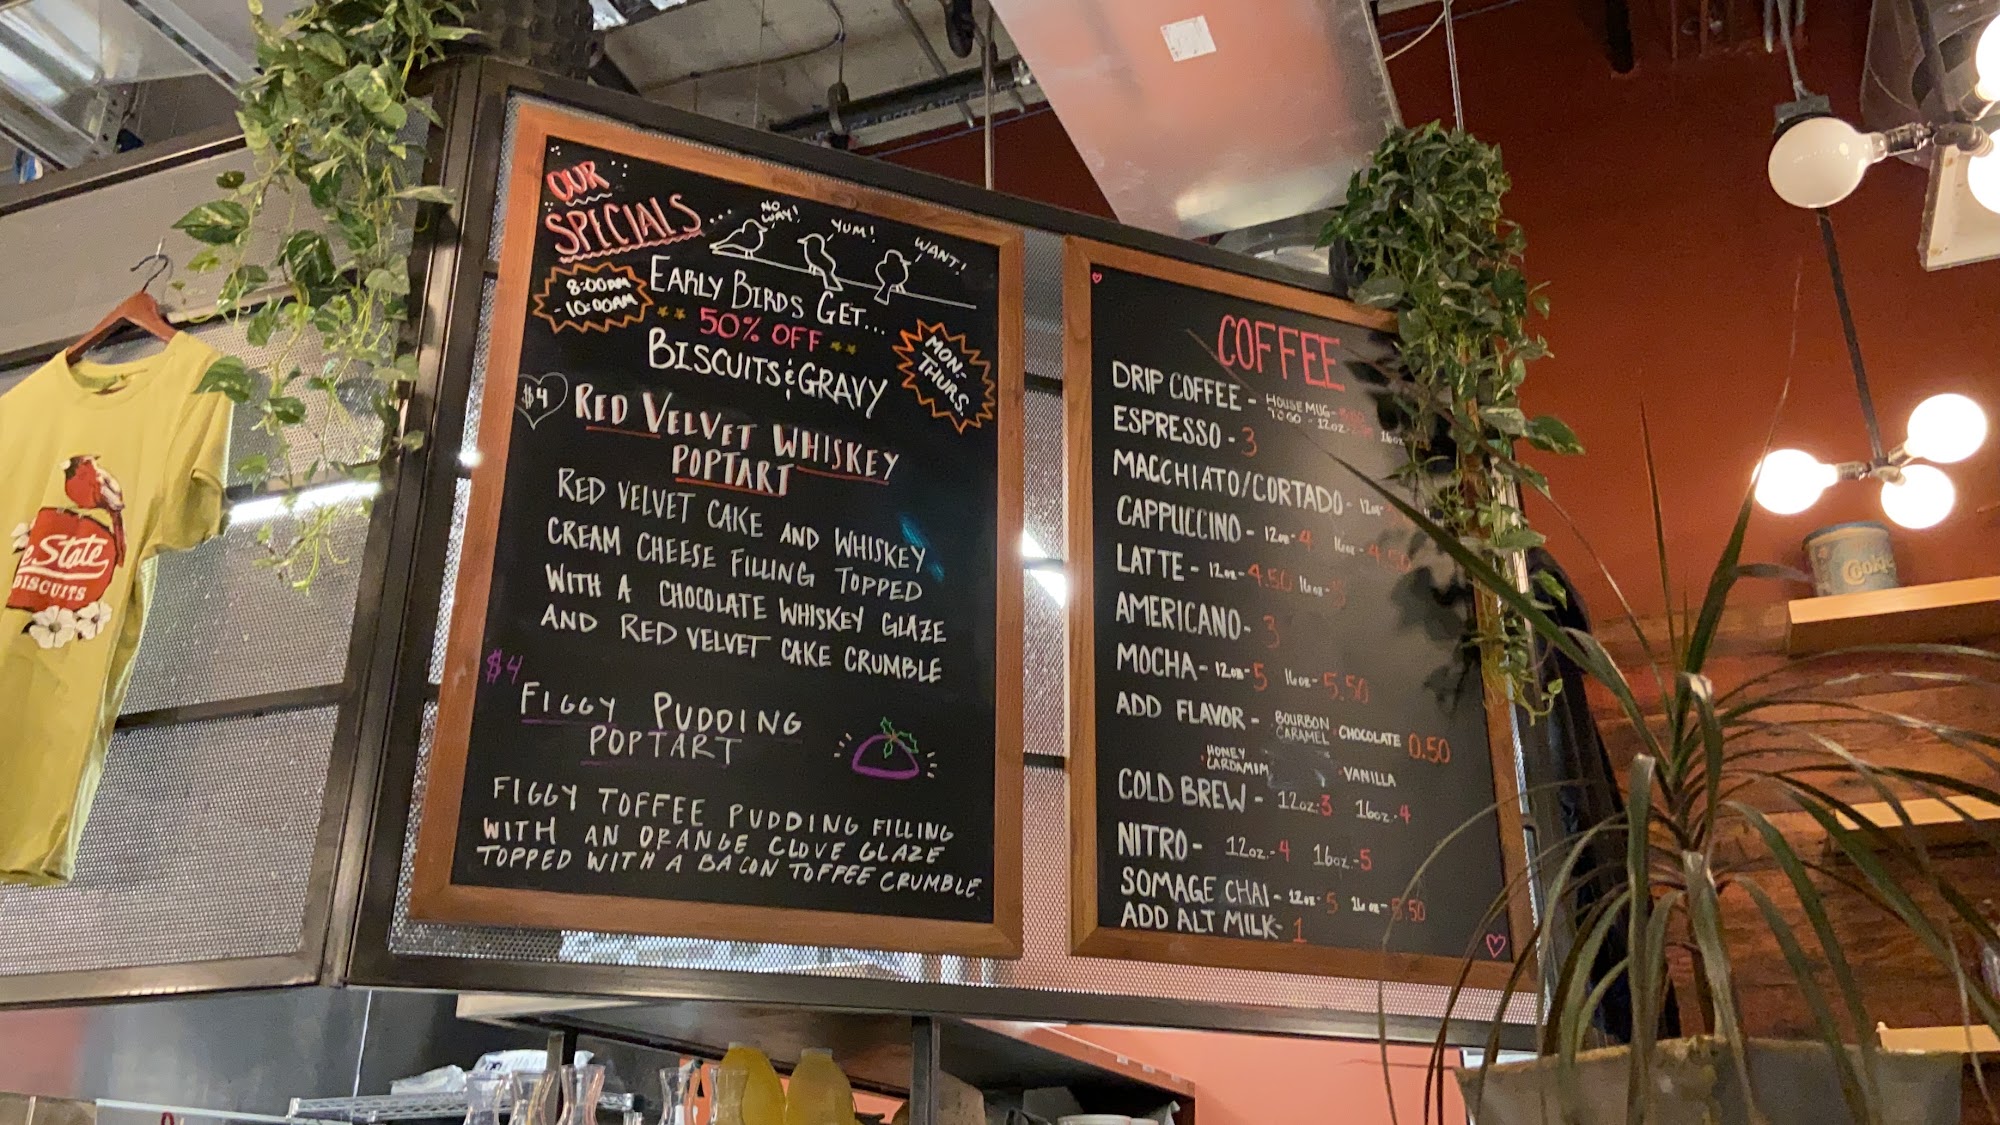 OUR
SPECIALS...
NO WAY!
YUM!
WANT!
8:00AM
- 10:00AM
EARLY BIRDS GET...
50% OFF
BISCUITS & GRAVY
MON-
THURS.
$4
RED VELVET WHISKEY
POPTART
RED VELVET CAKE AND WHISKEY
CREAM CHEESE FILLING TOPPED
WITH A CHOCOLATE WHISKEY GLAZE
AND RED VELVET CAKE CRUMBLE
$4
FIGGY PUDDING
POPTART
FIGGY TOFFEE PUDDING FILLING
WITH AN ORANGE CLOVE GLAZE
TOPPED WITH A BACON TOFFEE CRUMBLE
COFFEE
DRIP COFFEE - HOUSE MUG -
TO GO - 12oz 16oz
ESPRESSO - 3
MACCHIATO/CORTADO - 12oz-
CAPPUCCINO - 12oz - 4 16oz - 4.50
LATTE - 12oz - 4.50 16oz -
AMERICANO - 3
MOCHA - 12oz - 5 16oz - 5.50
ADD FLAVOR - BOURBON CARAMEL · CHOCOLATE 0.50
· HONEY CARDAMIM · VANILLA
COLD BREW - 12oz. 3 16oz. 4
NITRO - 12oz. - 4 16oz. - 5
SOMAGE CHAI - 12oz - 5 16oz - 5.50
ADD ALT MILK - 1
e State
BISCUITS
Cookie